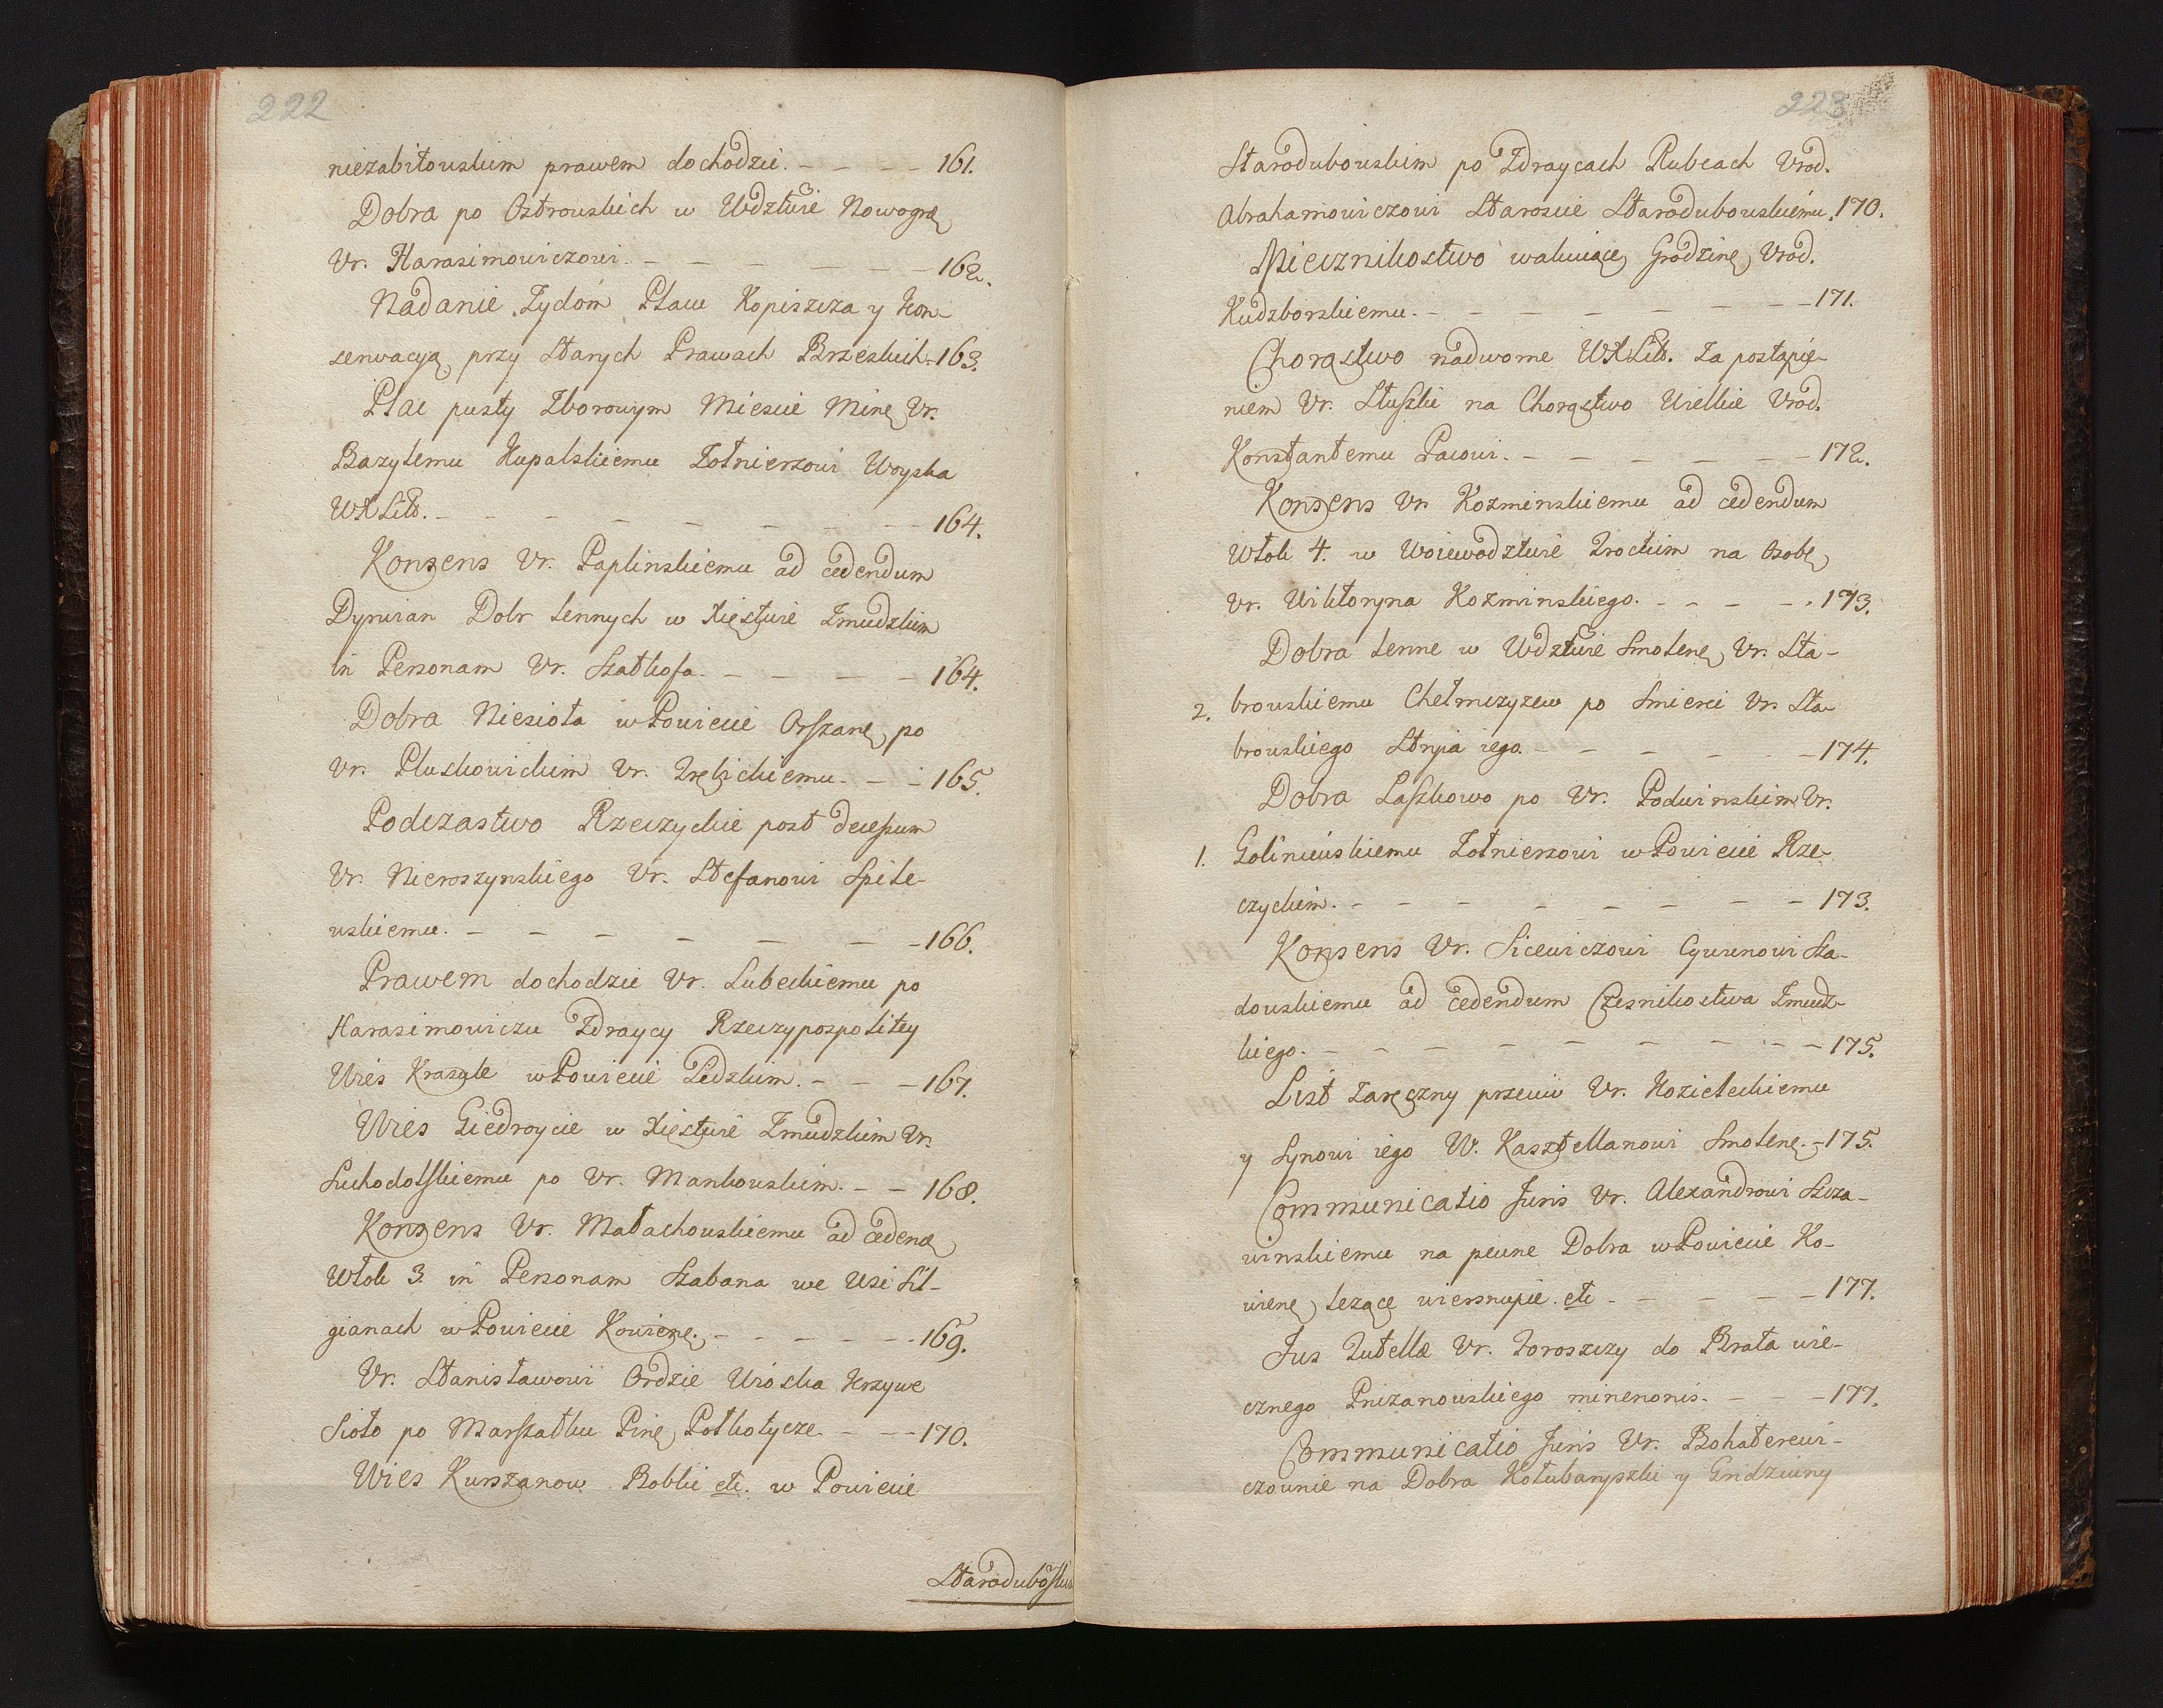 222
niezabitowskim prawem dochodzić. – – – – 161.
Dobra po Ostrowskich w Wdztwie Nowogrę
Ur. Harasimowiczowi. – – – – – – 162.
Nadanie Zydom Placu Kopiszcza y kon-
serwacyą przy starych Prawach Brzeskich. 163.
Plac pusty Zborowym Miescie Minę Ur.
Bazylemu Kupalskiemu Zołnierzowi Woyska
WXLitt. – – – – – – – – 164.
Konsens Ur. Paplinskiemu ad cedendum
Dyrwian Dobr lennych w Xięstwie Zmudzkim
in Personam Ur. Szatkofa. – – – – 164.
Dobra Niesiota w Powiecie Orszanę po
Ur. Pluskowickim Ur. Trębickiemu. – – 165.
Podczastwo Rzeczyckie post decessum
Ur. Nieroszynskiego Ur. Stefanowi Spile-
wskiemu. – – – – – – – 166.
Prawem dochodzić Ur. Lubeckiemu po
Harasimowiczu Zdraycy Rzeczypospolitey
Wieś Kraszle w Powiecie Lidzkim. – – – 167.
Wieś Giedroycie w Xięstwie Zmudzkim Ur.
Suchodolskiemu po Ur. Mankowskim. – – 168.
Konsens Ur. Małachowskiemu ad cedenđ
Włok 3. in Personam Szabana we Wsi Sil-
gianach w Powiecie Kowienę. – – – – – 169.
Ur. Stanisławowi Ordzie Wioska Krzywe
Sioło po Marszałku Pinę Połkotycze. – – – 170.
Wies Kurszanow Bobki etc. w Powiecie
Starodubosku
223
Starodubowskim po Zdraycach Rubcach Urod.
Abrahamowiczowi Staroscie Starodubowskiemu. 170.
Miecznikostwo wakuiącę Grodzinę Urod.
Kudzborskiemu. – – – – – – – 171.
Chorąstwo nadworne WXLitt. za postąpie-
niem Ur. Słuszki na Chorąstwo Wielkie Urod.
Konstantemu Pacowi. – – – – – – 172.
Konsens Ur. Kozminskiemu ad cedendum
Włok 4. w Woiewodztwie Trockim na Osobę
Ur. Wiktoryna Kozminskiego. – – – – 173.
Dobra lenne w Wdztwie Smolenę Ur. Sta-
2. browskiemu Chełmczyzew po Smierci Ur. Sta-
browskiego Stryia iego. – – – – – – 174.
Dobra Laszkowo po Ur. Podwinskim Ur.
1. Goliniewskiemu Zołnierzowi w Powiecie Rze-
czyckim. – – – – – – – – 173.
Konsens Ur. Sicewiczowi Cywunowi Sza-
dowskiemu ad cedendum Czesnikostwa Zmudz-
kiego. – – – – – – – – – 175.
List zaręczny przeciw Ur. Kozieleckiemu
y Synowi iego W. Kasztellanowi Smolenę. – 175.
Communicatio Juris Ur. Alexandrowi Szcza-
winskiemu na pewne Dobra w Powiecie Ko-
wienę leżące wiersnupie. etc – – – – – 177.
Jus Tutellæ Ur. Zoroszczy do Brata wie-
cznego Pnizanowskiego minenonis. – – – 177.
Communicatio Juris Ur. Bohaterewi-
czownie na Dobra Kołubaryszki y Gridziuny